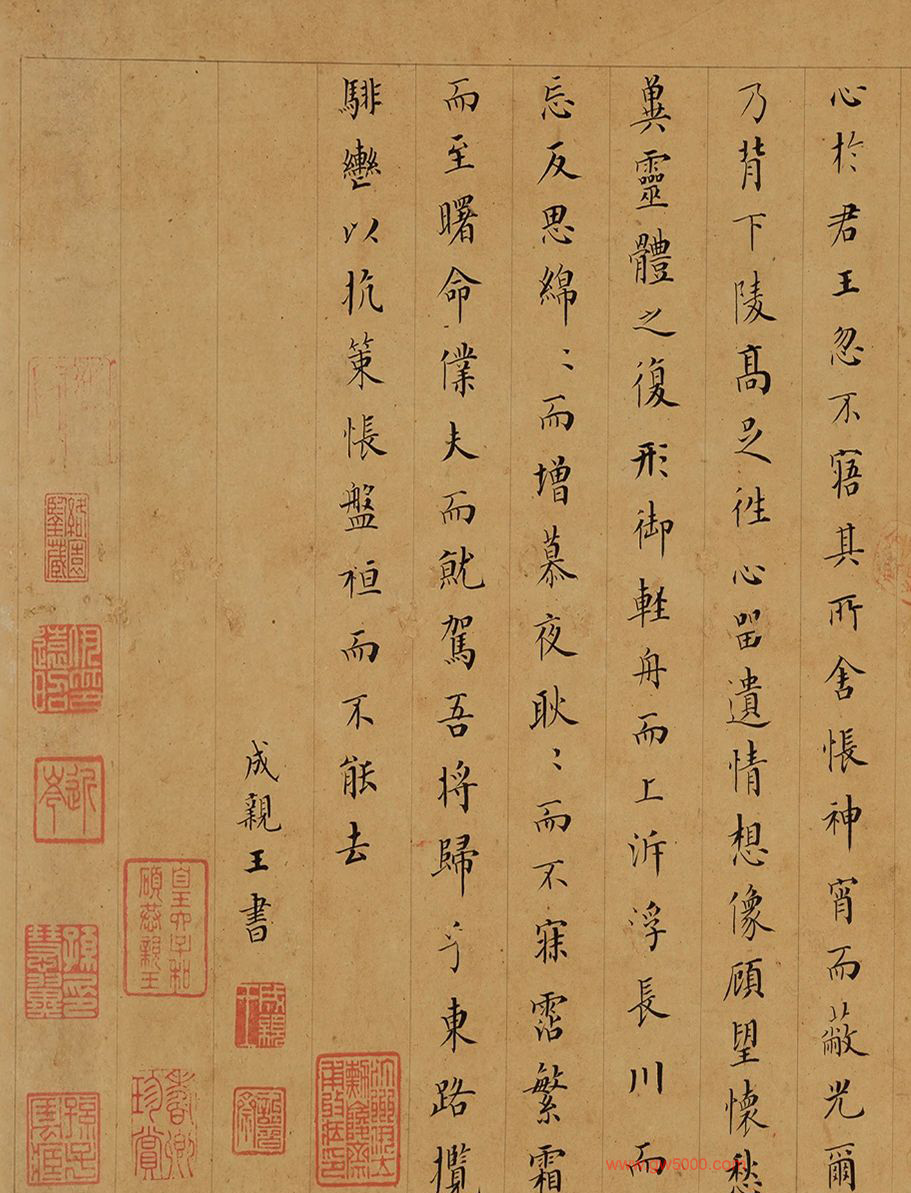 心於君王忽不寤其所舍悵神宵而蔽光爾
乃背下陵高足往心留遺情想像顧望懷愁
冀靈體之復形御輕舟而上泝浮長川而
忘反思綿〻而增慕夜耿〻而不寐霑繁霜
而至曙命僕夫而就駕吾將歸乎東路攬
騑轡以抗策悵盤桓而不能去
成親王書
成親王
詒晉齋
皇六子和碩恭親王
珍賞
www.gw5000.com